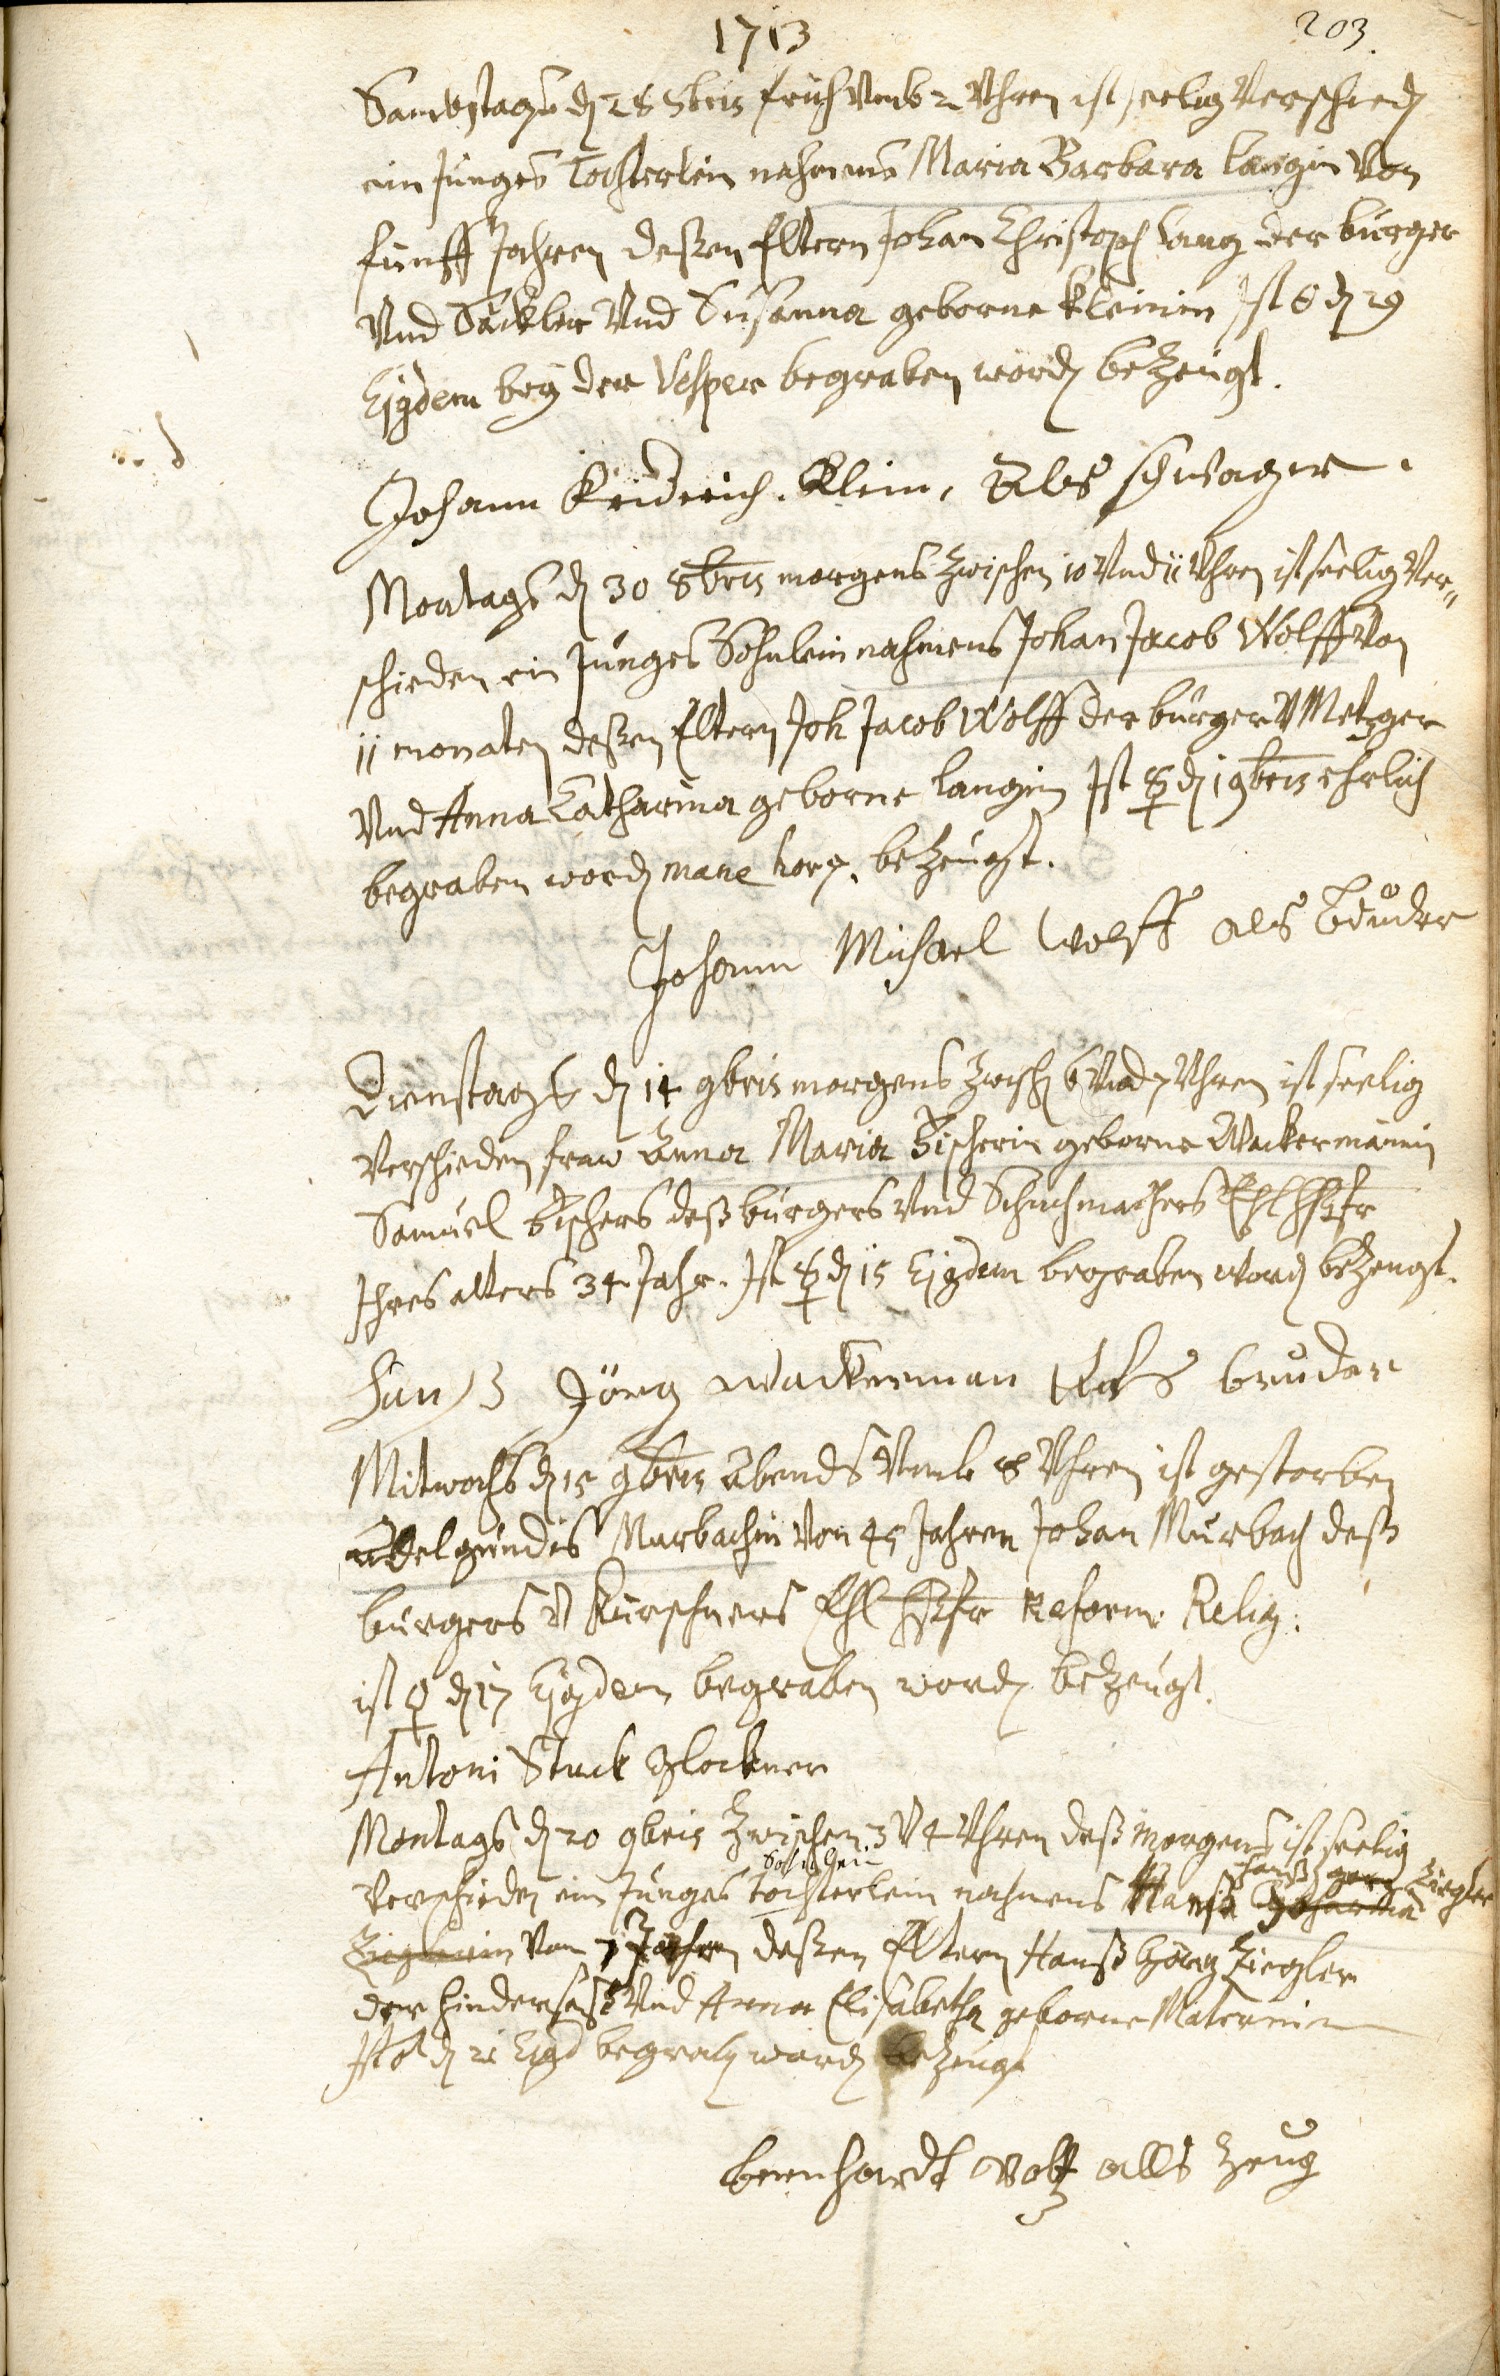 1713
203.
Sambstags dn 28 8bris früh Vmb 2 Vhren ist seelig Verschiedn
ein Junges Töchterlein nahmens Maria Barbara Langin Von
fünff Jahren deßen Eltern Johan Christoph Lang der burger
Vnd Säckler Vnd Susanna geborne Kleinin Ist dn 29
Ejgdem bey der Vesper begraben wordn bezeugt.
Johann Friderich. Klein, Als schwager.
Montags dn 30 8bris morgens zwischen 10 Vnd 11 Vhren ist seelig Ver„
schieden ein Junges Söhnlein nahmens Johan Jacob Wolff Von
11 monaten deßen Eltern Joh Jacob Wolff der burger V Metzger
Vnd Anna Catharina geborne Langin Ist ☿ dn 1 9bris ehrlich
begraben wordn mane hor 9. bezeugt.
Johann Michael Wolff als bruder
Dienstags dn 14 9bris morgens zwischn 6 Vnd 7 Vhren ist seelig
Verschieden fraw Anna Maria Fischerin geborne Wackermännin
Samuel Fischers deß burgers Vnd Schuhmachers Ehl Hßfr
Ihres alters 34 Jahr. Ist ☿ dn 15 Ejgdem begraben wordn bezeugt.
Hanß Jörg Wackerman Als bruder
Mitwochs dn 15 9bris Abends Vmb 8 Vhren ist gestorben
Adelgundis Murbachin Von 45 Jahren Johan Murbach deß
burgers V Kürschners Ehl Hßfr Reform. Relig:
ist ♀ dn 17 Ejgdem begraben wordn bezeugt.
Antoni Stuck Glockner
Montags dn 20 9bris zwischen 3 V 4 Vhren deß morgens ist seelig
Söhnlein Hanß Ziegler
Verschieden ein Junges Töchterlein nahmens
Zieglerin Von 7 Jahren deßen Eltern Hanß Georg Ziegler
der hindersaß Vnd Anna Elisabetha geborne Maternin
Ist ♂ dn 21 Ejgd begrabn wordn bezeugt
bernhardt Voltz alls Zeug